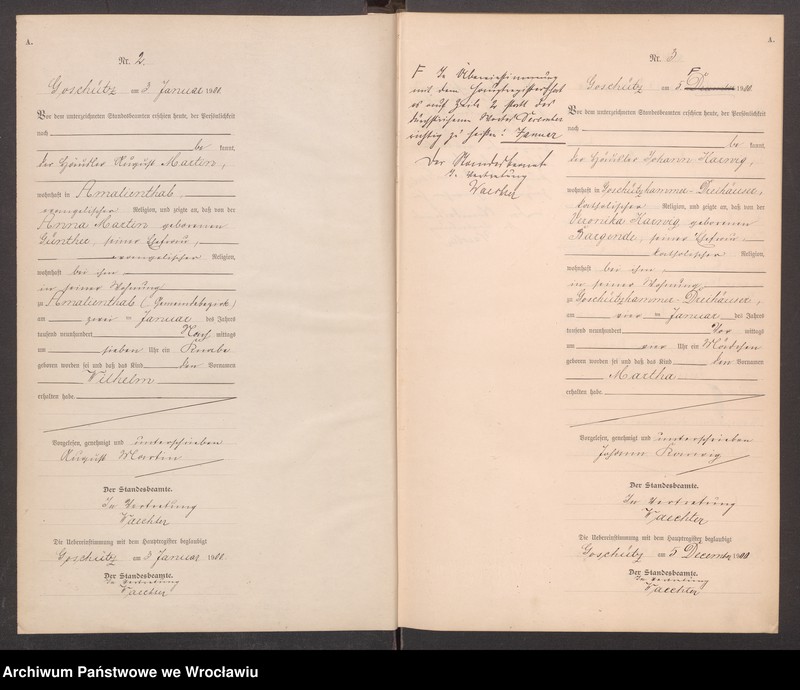 A.
Nr. 2.
Goschütz am 3 Januar 1900.
Vor dem unterzeichneten Standesbeamten erschien heute, der Persönlichkeit
nach
be kannt,
der Häusler August Martin,
wohnhaft in Amalienthal,
evangelischer Religion, und zeigte an, daß von der
Anna Martin geborenen
Günther, seiner Ehefrau,
evangelischer Religion,
wohnhaft bei ihm
in seiner Wohnung
zu Amalienthal (Gemeindebezirk)
am zwei ten Januar des Jahres
tausend neunhundert Nach mittags
um sieben Uhr ein Knabe
geboren worden sei und daß das Kind den Vornamen
Wilhelm
erhalten habe
Vorgelesen, genehmigt und unterschrieben
August Martin
Der Standesbeamte.
In Vertretung
Waechter
Die Uebereinstimmung mit dem Hauptregister beglaubigt
Goschütz am 3 Januar 1900.
Der Standesbeamte.
In Vertretung
Waechter
F In Übereinstimmung
mit dem Hauptregister hat
es auf Zeile 2 statt des
durchstrichenen Wortes December
richtig zu heißen: Januar
Der Standesbeamte
In Vertretung
Waechter
A.
Nr. 3
Goschütz am 5. F December 1900.
Vor dem unterzeichneten Standesbeamten erschien heute, der Persönlichkeit
nach
be kannt,
der Häusler Johann
wohnhaft in Goschützhammer-Dreihäuser,
katholischer Religion, und zeigte an, daß von der
Veronika geborenen
seiner Ehefrau,
katholischer Religion,
wohnhaft bei ihm
in seiner Wohnung
zu Goschützhammer-Dreihäuser,
am vier ten Januar des Jahres
tausend neunhundert Vor mittags
um vier Uhr ein Mädchen
geboren worden sei und daß das Kind den Vornamen
Martha
erhalten habe
Vorgelesen, genehmigt und unterschrieben
Johann
Der Standesbeamte.
In Vertretung
Waechter
Die Uebereinstimmung mit dem Hauptregister beglaubigt
Goschütz am 5 December 1900.
Der Standesbeamte.
In Vertretung
Waechter
Archiwum Państwowe we Wrocławiu